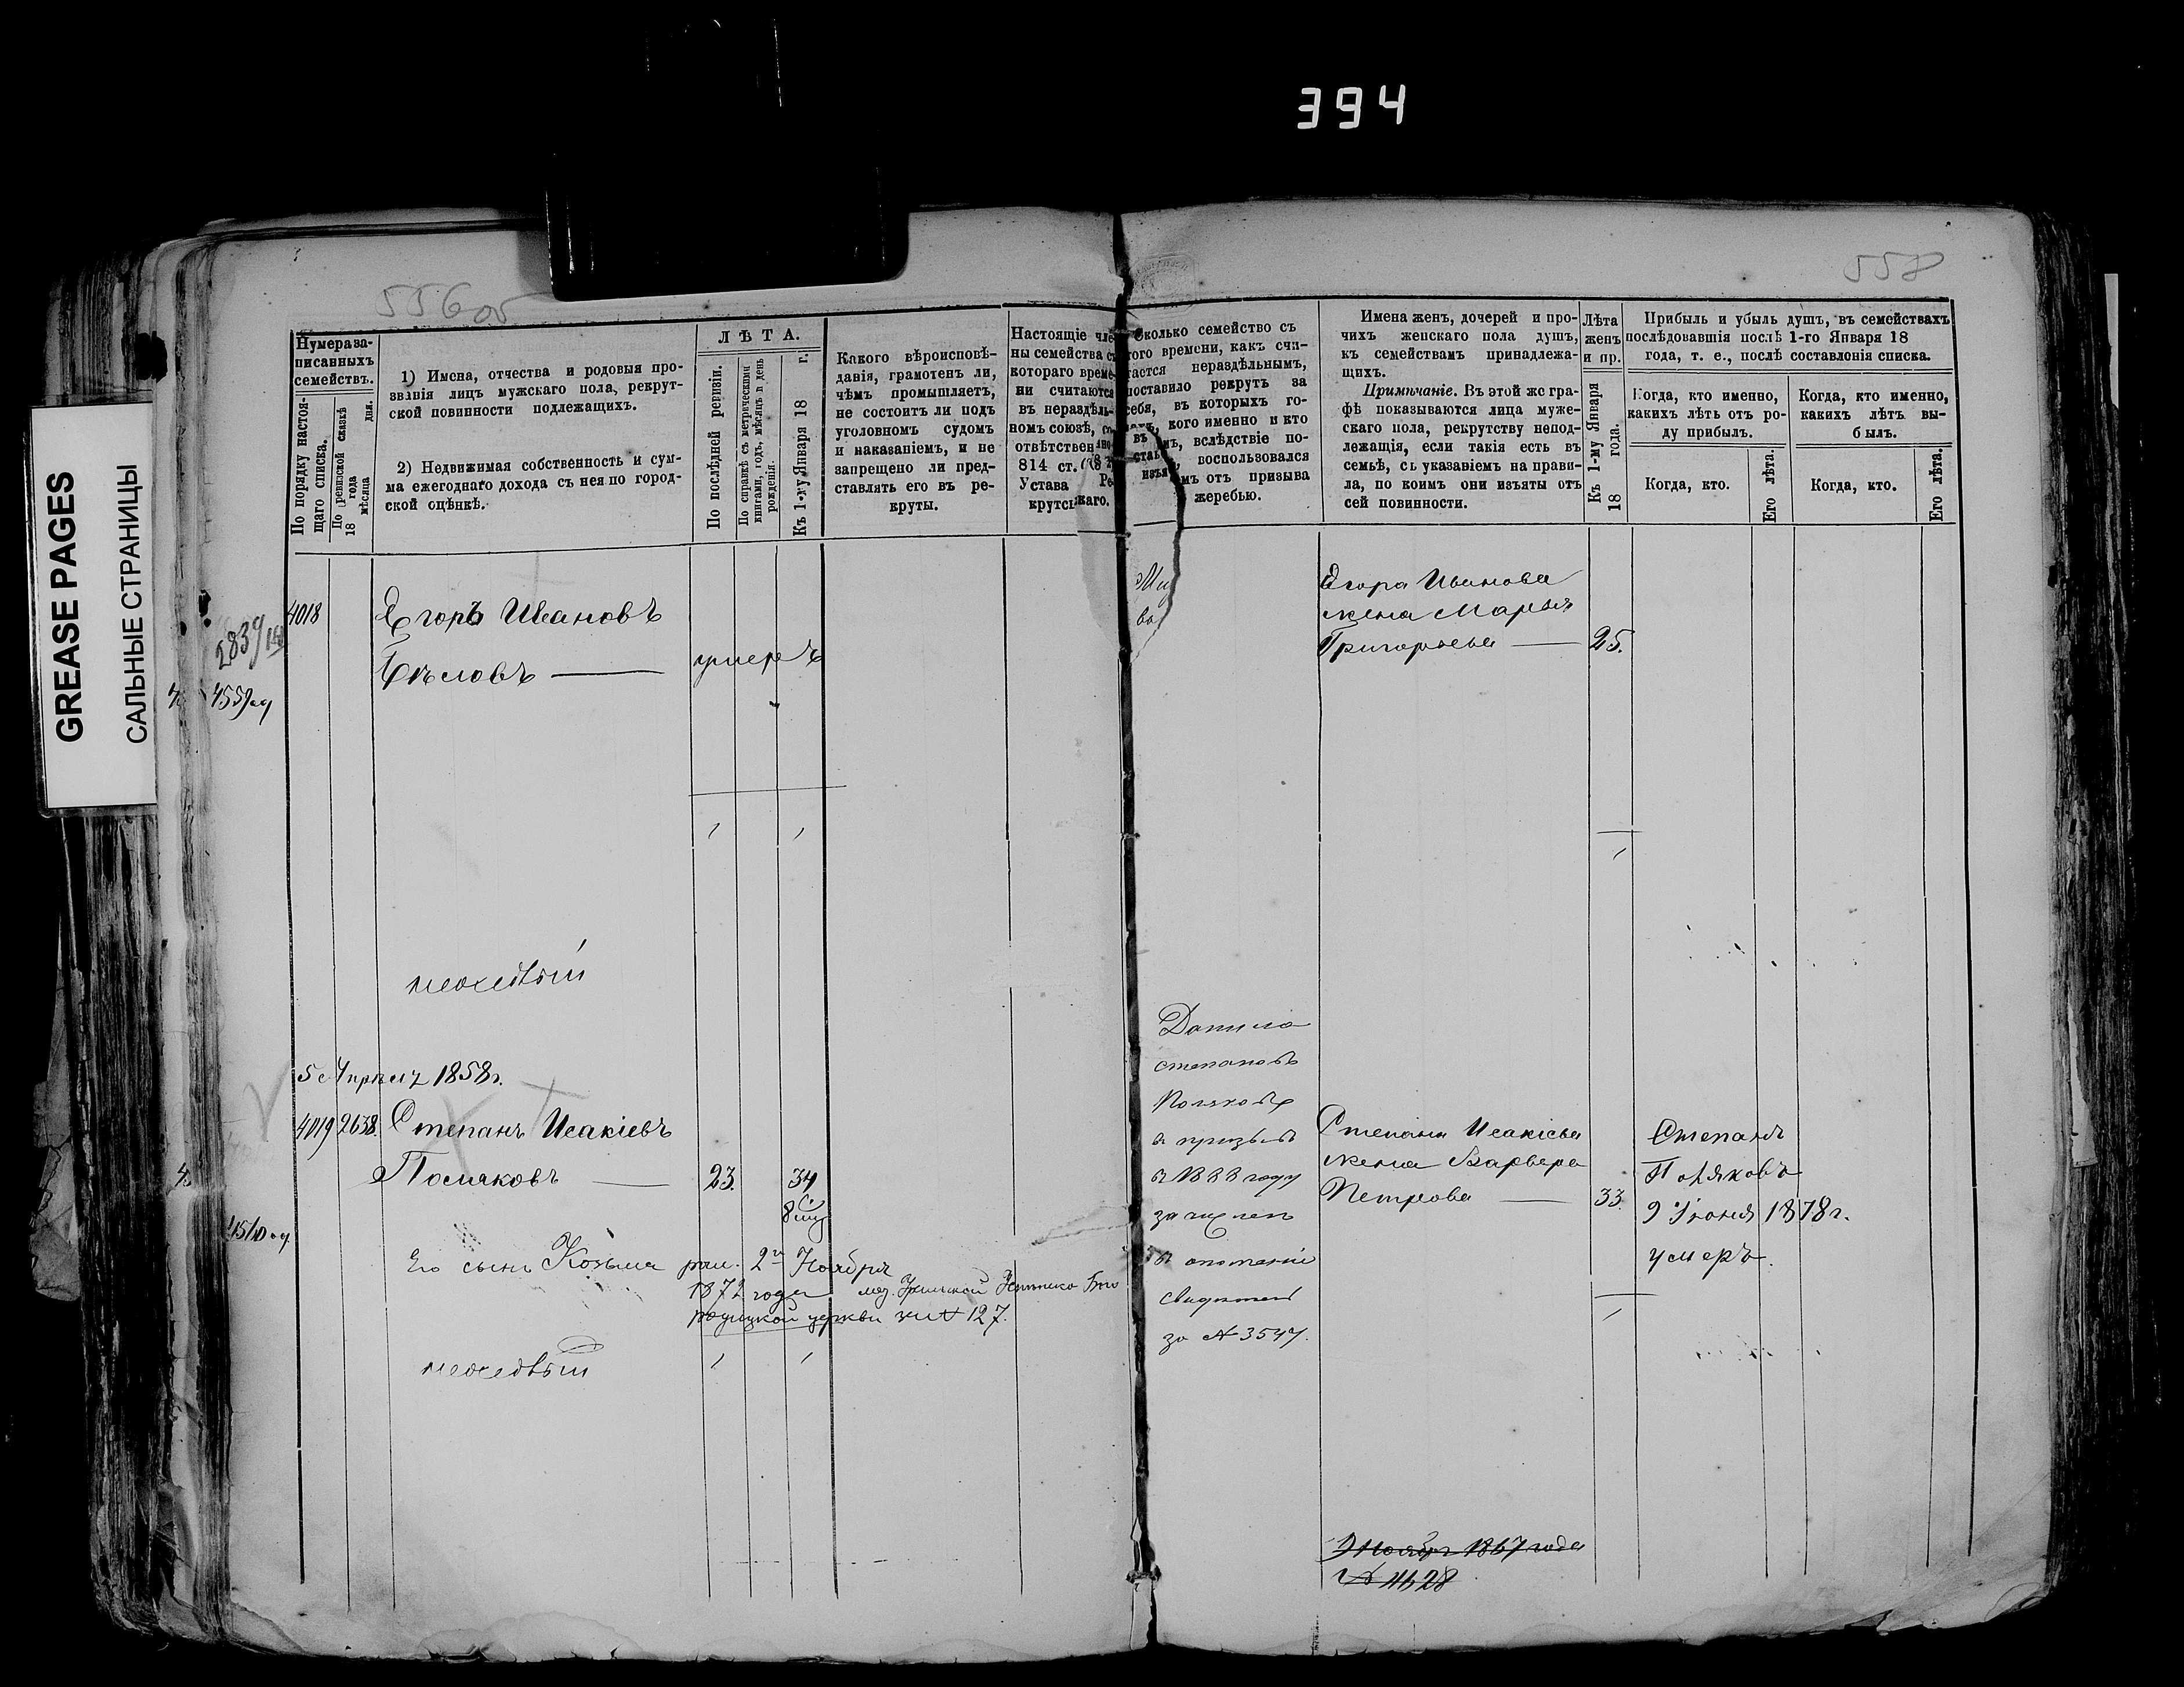 394
GREASE PAGES
САЛЬНЫЕ СТРАНИЦЫ
556об
558
Нумера за-
писанныхъ
семействъ.
По порядку настоя-
щаго списка.
По ревизской сказкѣ
18 года
мѣсяца дня.
1) Имена, отчества и родовыя про-
званія лицъ мужскаго пола, рекрут-
ской повинности подлежащихъ.
2) Недвижимая собственность и сум-
ма ежегоднаго дохода съ нея по город-
ской оцѣнкѣ.
ЛѢТА.
По послѣдней ревизіи.
По справкѣ съ метрическими
книгами, годъ, мѣсяцъ и день
рожденія.
Къ 1-му Января 18 г.
Какого вѣроисповѣ-
данія, грамотенъ ли,
чѣмъ промышляетъ,
не состоитъ ли подъ
уголовномъ судомъ
и наказаніемъ, и не
запрещено ли пред-
ставлять его въ ре-
круты.
Настоящіе чле-
ны семейства съ
котораго време-
ни считаются
въ нераздѣль-
номъ союзѣ,
отвѣтствен
814 ст.
Устава Ре-
крутскаго.
Сколько семейство съ
того времени, какъ счи-
тается нераздѣльнымъ,
поставило рекрутъ за
себя, въ которыхъ го-
дахъ, кого именно и кто
въ вслѣдствіе по-
воспользовался
изъя мъ отъ призыва
жеребью.
Имена женъ, дочерей и про-
чихъ женскаго пола душъ,
къ семействамъ принадлежа-
щихъ.
Примѣчаніе. Въ этой же гра-
фѣ показываются лица муже-
скаго пола, рекрутству непод-
лежащія, если такія есть въ
семьѣ, съ указаніемъ на прави-
ла, по коимъ они изъяты отъ
сей повинности.
Лѣта
женъ
и пр.
Къ 1-му Января
18 года.
Прибыль и убыль душъ, въ семействахъ
послѣдовавшія послѣ 1-го Января 18
года, т. е., послѣ составленія списка.
Когда, кто именно,
какихъ лѣтъ отъ ро-
ду прибылъ.
Когда, кто.
Его лѣта.
Когда, кто именно,
какихъ лѣтъ вы-
былъ.
Когда, кто.
Его лѣта.
4018
Егоръ Ивановъ
Бѣловъ
умеръ
Егора Иванова
жена Марья
Григорьева 25.
5 Апрѣля 1858г.
4019 2638. Степанъ Исакіевъ
Поляковъ 23. 34
Его сынъ Козьма рож. 2го Ноября
1872 года
родицкой церкви за № 127.
Данило
Степановъ
Поляковъ
въ призывъ
въ 1888 году
зачисленъ
въ ополченіе
свидѣтел
за № 3547.
Степана Исакіева
жена Варвара
Петрова 33.
Степанъ
Поляковъ
9 Іюня 1878г.
умеръ.
9 Ноября 1867 года